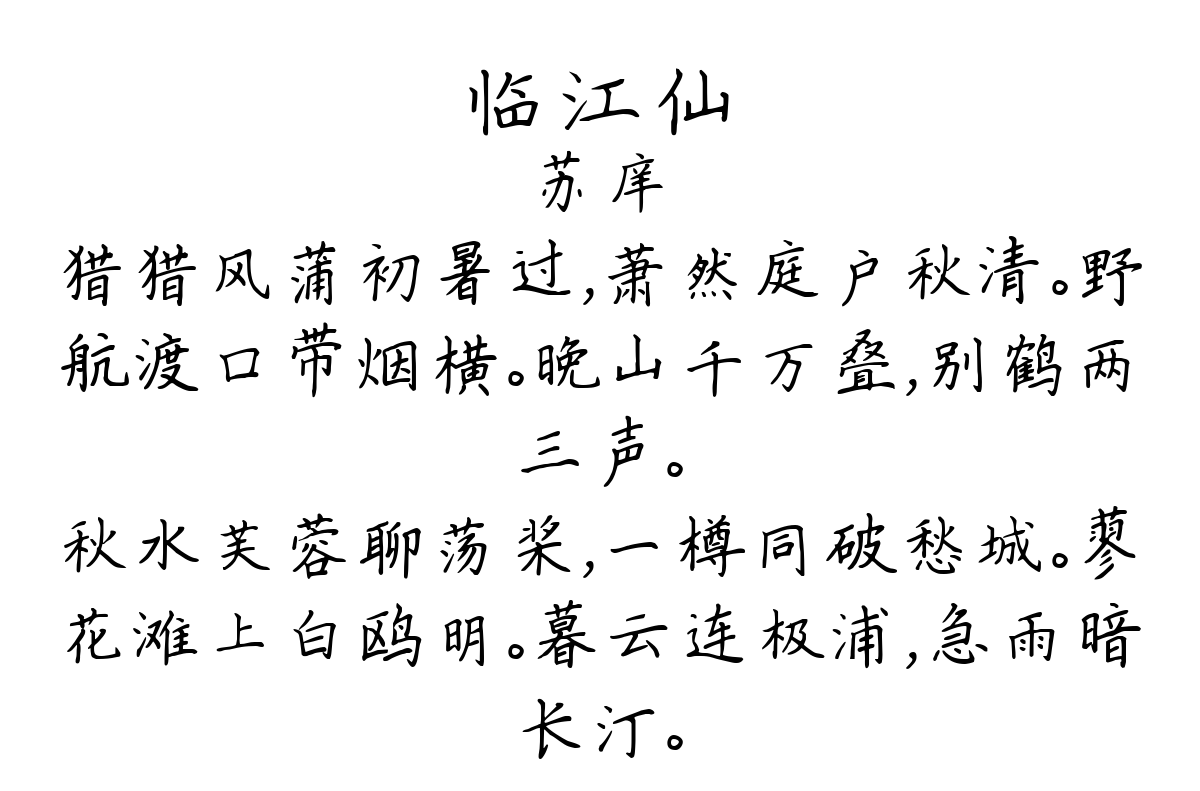 临江仙
苏庠
猎猎风蒲初暑过,萧然庭户秋清。野
航渡口带烟横。晚山千万叠,别鹤两
三声。
秋水芙蓉聊荡桨,一樽同破愁城。蓼
花滩上白鸥明。暮云连极浦,急雨暗
长汀。